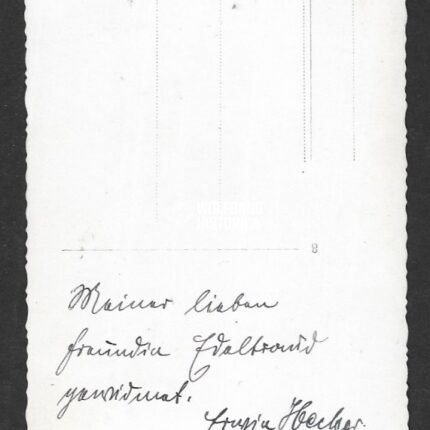 8
Meiner lieben
Freundin Edeltraud
gewidmet.
Erwin Hecker.